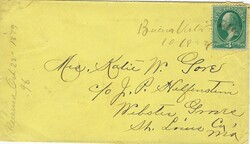 Buena Vista
Mrs. Katie W. Gore
c/o J. P. Helfenstein
Webster Groves
St. Louis Co.
Mo
Received Oct 22 1879
96